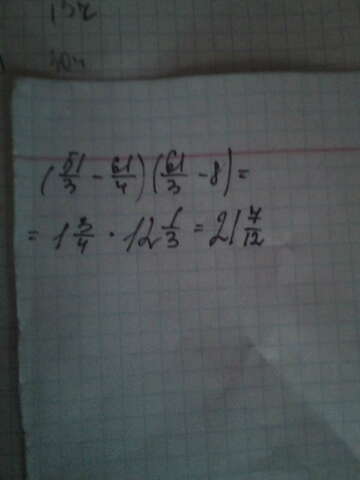 (51/3 - 61/4)(61/3 - 8) =
= 1 3/4 · 12 1/3 = 21 7/12